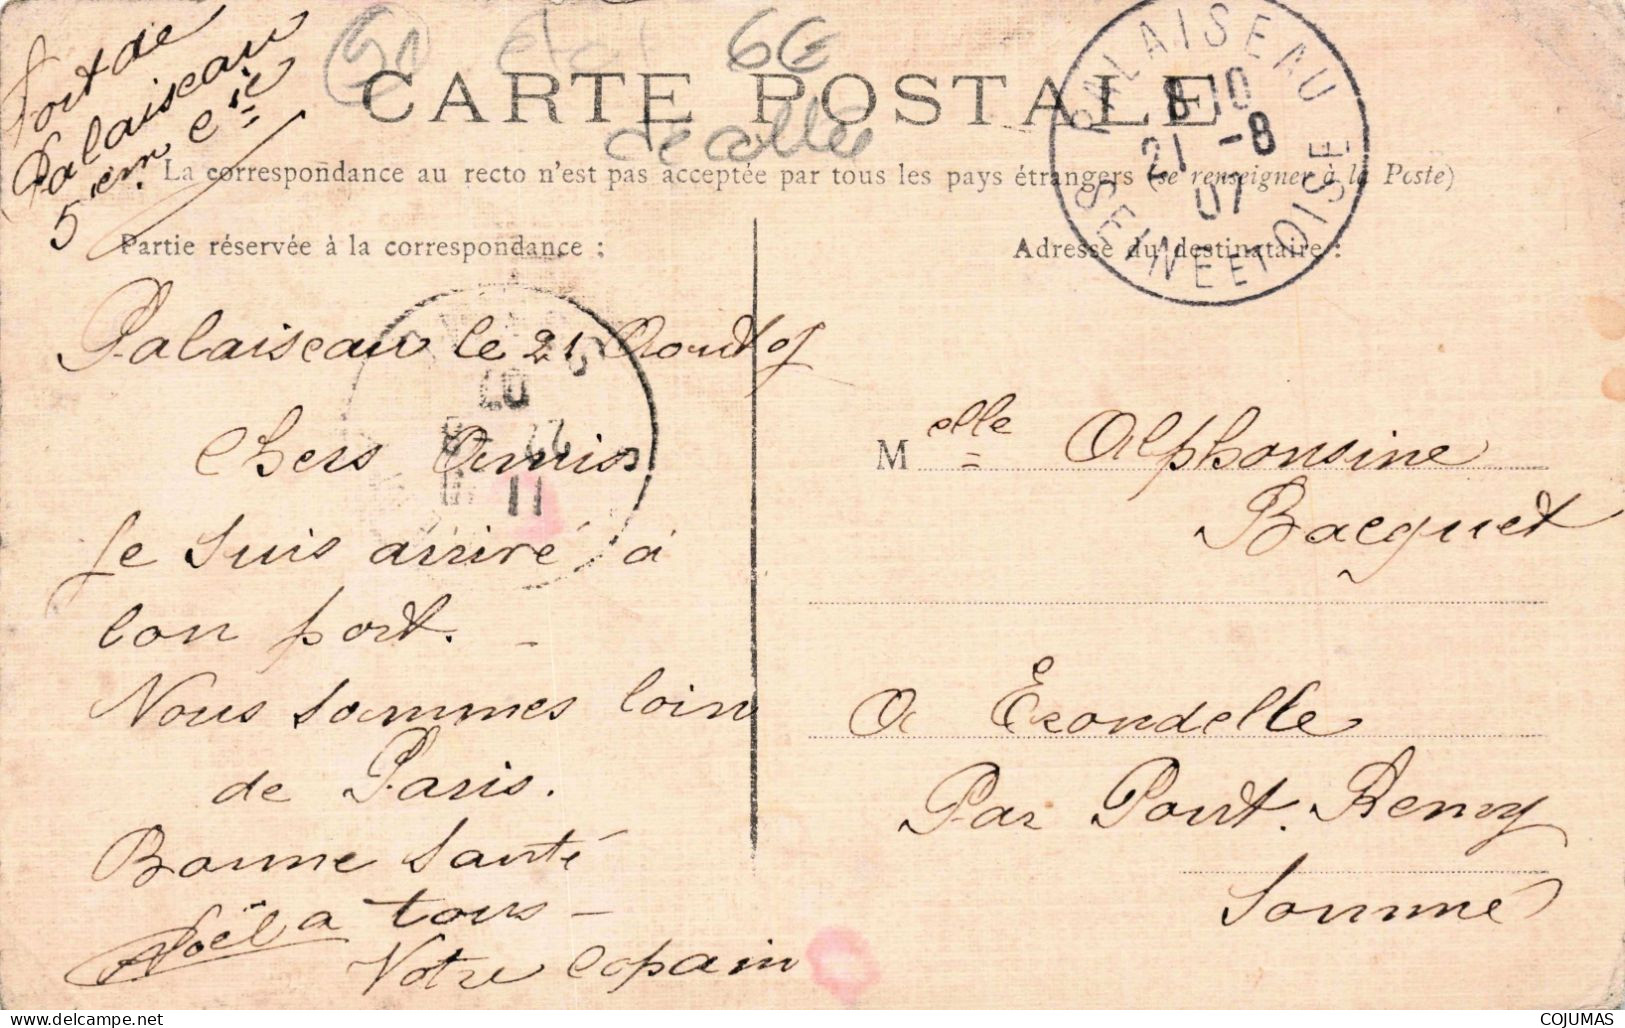 Fort de
Palaiseau
5 em Cie
51
état
6€
CARTE POSTALE
decollée
La correspondance au recto n'est pas acceptée par tous les pays étrangers (se renseigner à la Poste)
Partie réservée à la correspondance :
Adresse du destinataire :
PALAISEAU
8 10
21 -8
07
SEINE ET OISE
Palaiseau le 21 Aout 07
Chers Amis
Je suis arrivé a
bon port.
Nous sommes loin
de Paris.
Bonne Santé
a tous -
Votre copain
Noël
07
22
11
Melle Alphonsine
Bacquet
A Erondelle
Par Pont. Remy
Somme
COJUMAS